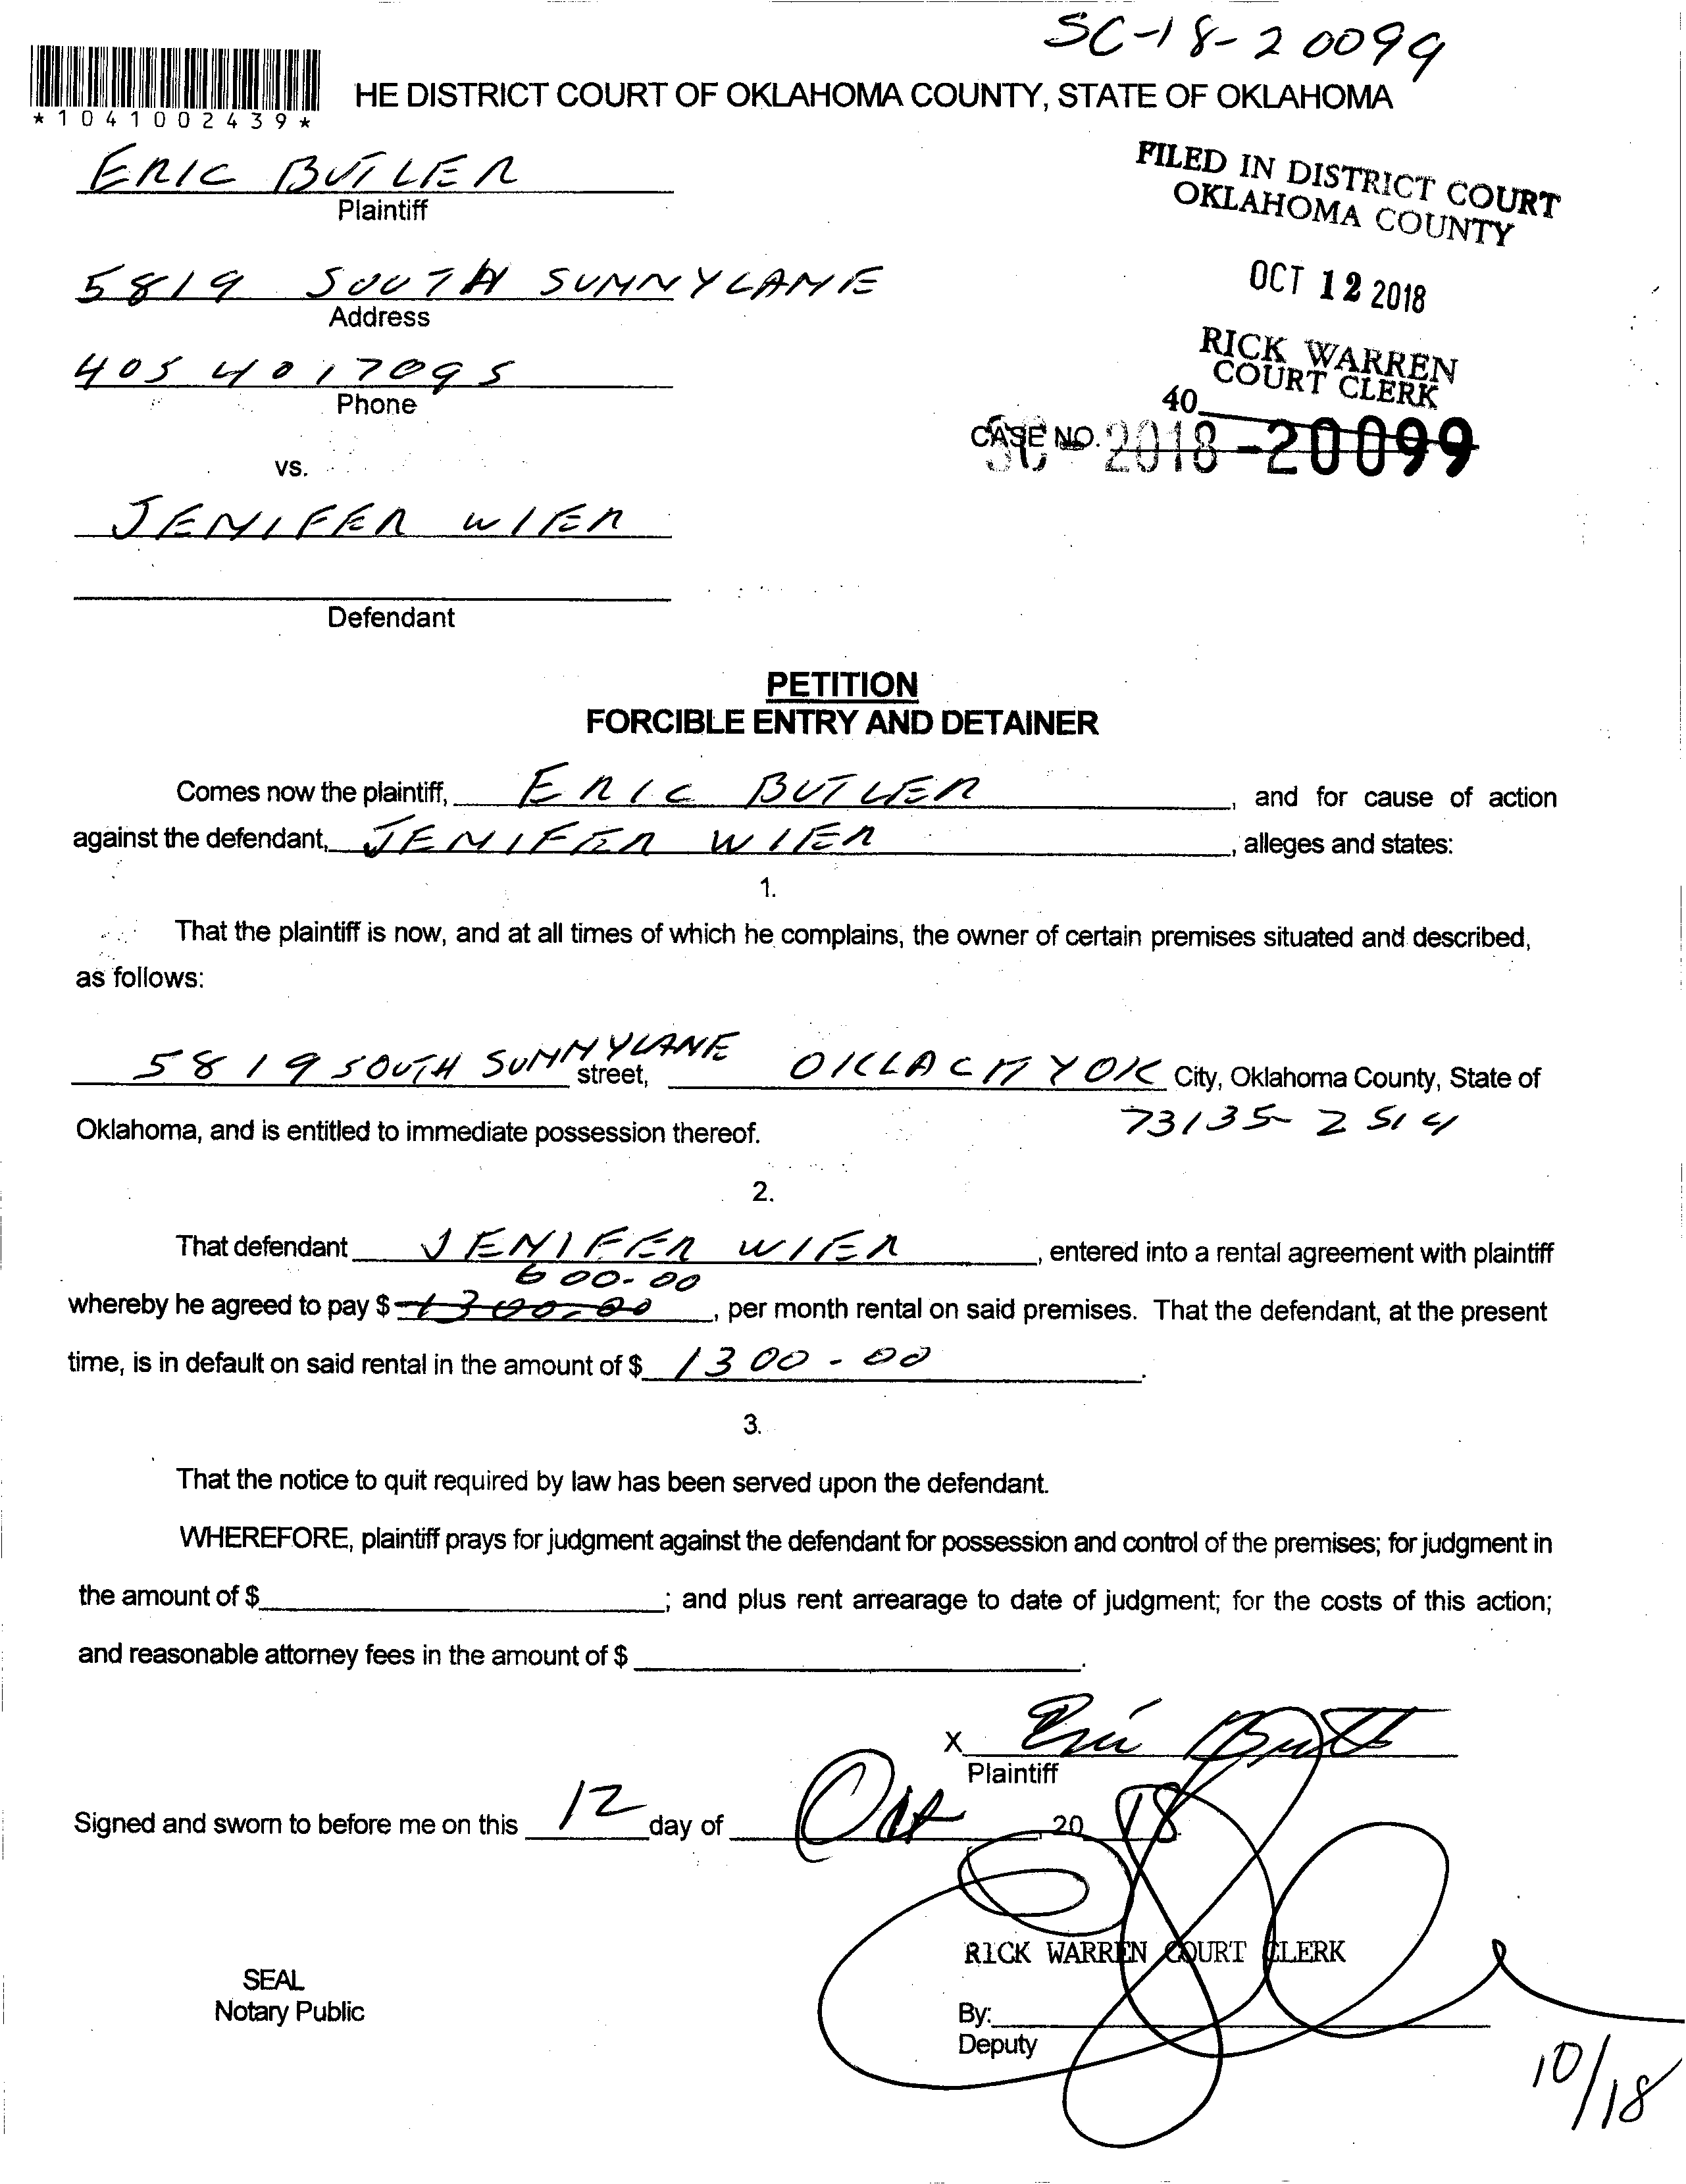 SC-18-20099
*1041002439*
HE DISTRICT COURT OF OKLAHOMA COUNTY, STATE OF OKLAHOMA
ERIC BUTLER
Plaintiff
FILED IN DISTRICT COURT
OKLAHOMA COUNTY
5819 SOUTH SUNNYLANE
Address
OCT 12 2018
405 401 7095
Phone
RICK WARREN
COURT CLERK
40
CASE NO. SC-2018-20099
vs.
JENIFER WIER
Defendant
PETITION
FORCIBLE ENTRY AND DETAINER
Comes now the plaintiff, ERIC BUTLER, and for cause of action
against the defendant, JENIFER WIER, alleges and states:
1.
That the plaintiff is now, and at all times of which he complains, the owner of certain premises situated and described,
as follows:
5819 SOUTH SUNNYLANE street, OKLA CITY OK City, Oklahoma County, State of
Oklahoma, and is entitled to immediate possession thereof. 73135-2514
2.
That defendant JENIFER WIER, entered into a rental agreement with plaintiff
600-00
whereby he agreed to pay $ 1300-00, per month rental on said premises. That the defendant, at the present
time, is in default on said rental in the amount of $ 1300-00.
3.
That the notice to quit required by law has been served upon the defendant.
WHEREFORE, plaintiff prays for judgment against the defendant for possession and control of the premises; for judgment in
the amount of $ ; and plus rent arrearage to date of judgment; for the costs of this action;
and reasonable attorney fees in the amount of $ .
X Eric Butler
Plaintiff
Signed and sworn to before me on this 12 day of Oct, 20 18.
RICK WARREN COURT CLERK
SEAL
Notary Public
By:
Deputy
10/18